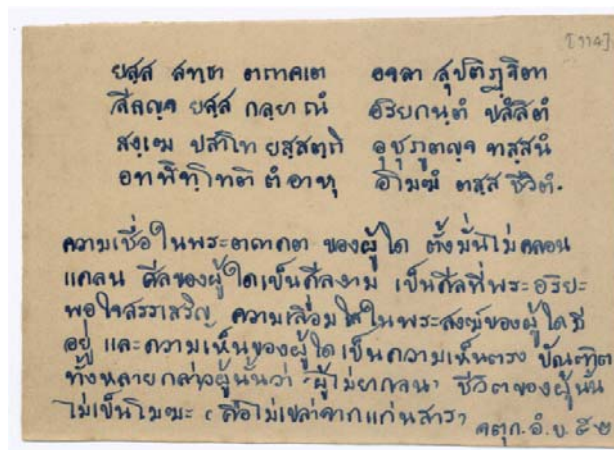 [๖๖๔]
ยสฺส สทฺธา ตถาคเต อจลา สุปติฏฺฐิตา
สีลญฺจ ยสฺส กลฺยาณํ อริยกนฺตํ ปสํสิตํ
สงฺเฆ ปสาโท ยสฺสตฺถิ อุชุภูตญฺจ ทสฺสนํ
อทฬิทฺโทติ ตํ อาหุ อโมฆํ ตสฺส ชีวิตํ.
ความเชื่อในพระตถาคตา ของผู้ใด ตั้งมั่นไม่คลอน
แคลน ศีลของผู้ใดเป็นศีลงาม เป็นศีลที่พระอริยะ
พอใจสรรเสริญ ความเลื่อมใสในพระสงฆ์ของผู้ใดมี
อยู่ และความเห็นของผู้ใดเป็นความเห็นตรง บัณฑิต
ทั้งหลายกล่าวผู้นั้นว่า "ผู้ไม่ยากจน" ชีวิตของผู้นั้น
ไม่เป็นโมฆะ (คือไม่เปล่าจากแก่นสาร)
จตุก. อํ. ข. ๕๒